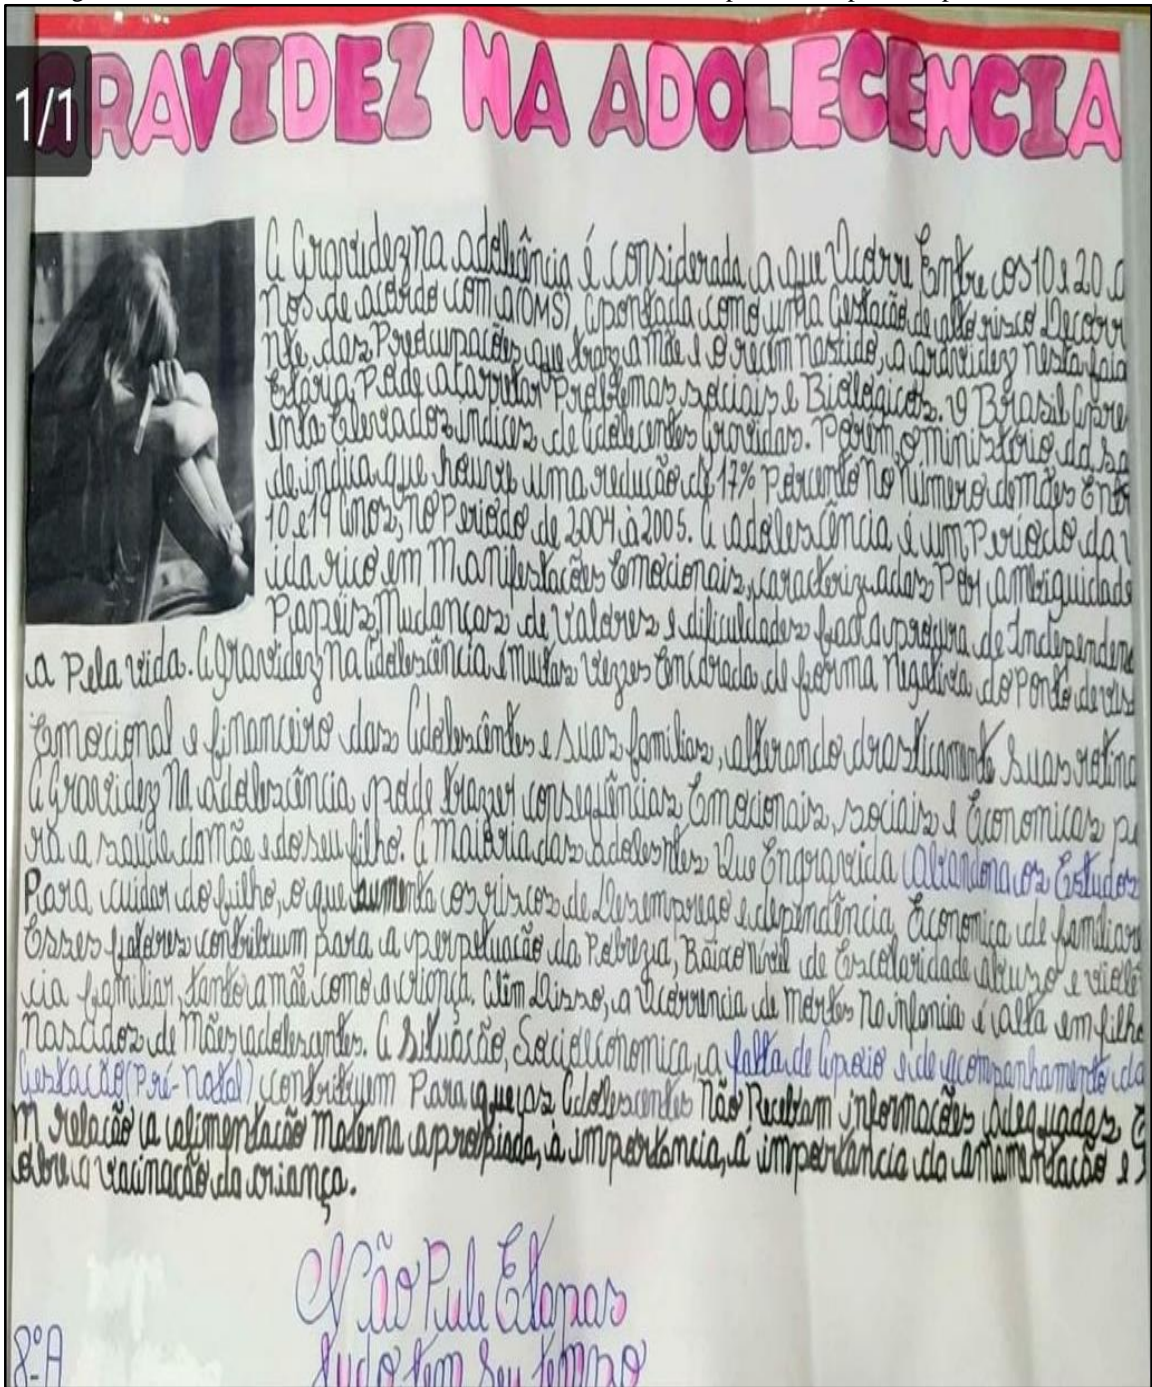 1/1
GRAVIDEZ NA ADOLECENCIA
A Gravidez na adolecência é considerada a que Ocorre Entre os 10 e 20 a
nos de acordo com a (OMS), Apontada como uma Gestação de alto risco Decorr
nte das Preocupações que traz a mãe e o recem nascido, a gravidez nesta faia
Etária Pode acarretar Problemas sociais e Biologicos. O Brasil Apre
enta Elevados indices de Adolecentes Gravidas. Porem, o ministério da sa
de indica que houve uma redução de 17% Porcento no Número de mães Entr
10 e 19 Anos, no Período de 2004 à 2005. A adolescência é um Periodo da v
ida rico em Manifestações Emocionais, caracterizadas Por ambiguidade
Papéis, Mudanças de Valores e dificuldades face a procura de Independen
a Pela vida. A Gravidez na Adolescência é muitas vezes Encarada de forma Negativa do Ponto de vis
Emocional e financeiro das Adolescêntes e suas familias, alterando drasticamente suas rotina
A Gravidez Na adolescência pode trazer consequências Emocionais, sociais e Economicas pa
ra a saúde da mãe e do seu filho. A Maioria das Adolesntes Que Engravida Abandona os Estudos
Para cuidar do filho, o que aumenta os riscos de Desemprego e dependência Economica de familiare
Esses fatores contribuim para a perpetuação da Pobreza, Baixo Nível de Escolaridade abuso e violê
cia familiar, tanto a mãe como a criança. Além Disso, a Ocorrencia de Mortes Na infancia é alta em filho
Nascidos de Mães adolescentes. A Situação, Socioeconomica, a falta de Apoio e de acompanhamento da
Gestação (Pré-Natal) contribuem Para que as Adolescentes Não Recebam informações Adequadas E
m relação a alimentação Materna apropiada, à importancia, á importancia da amamentação e s
obre a vacinação da criança.
Não Pule Etapas
tudo tem seu tempo
8ºA